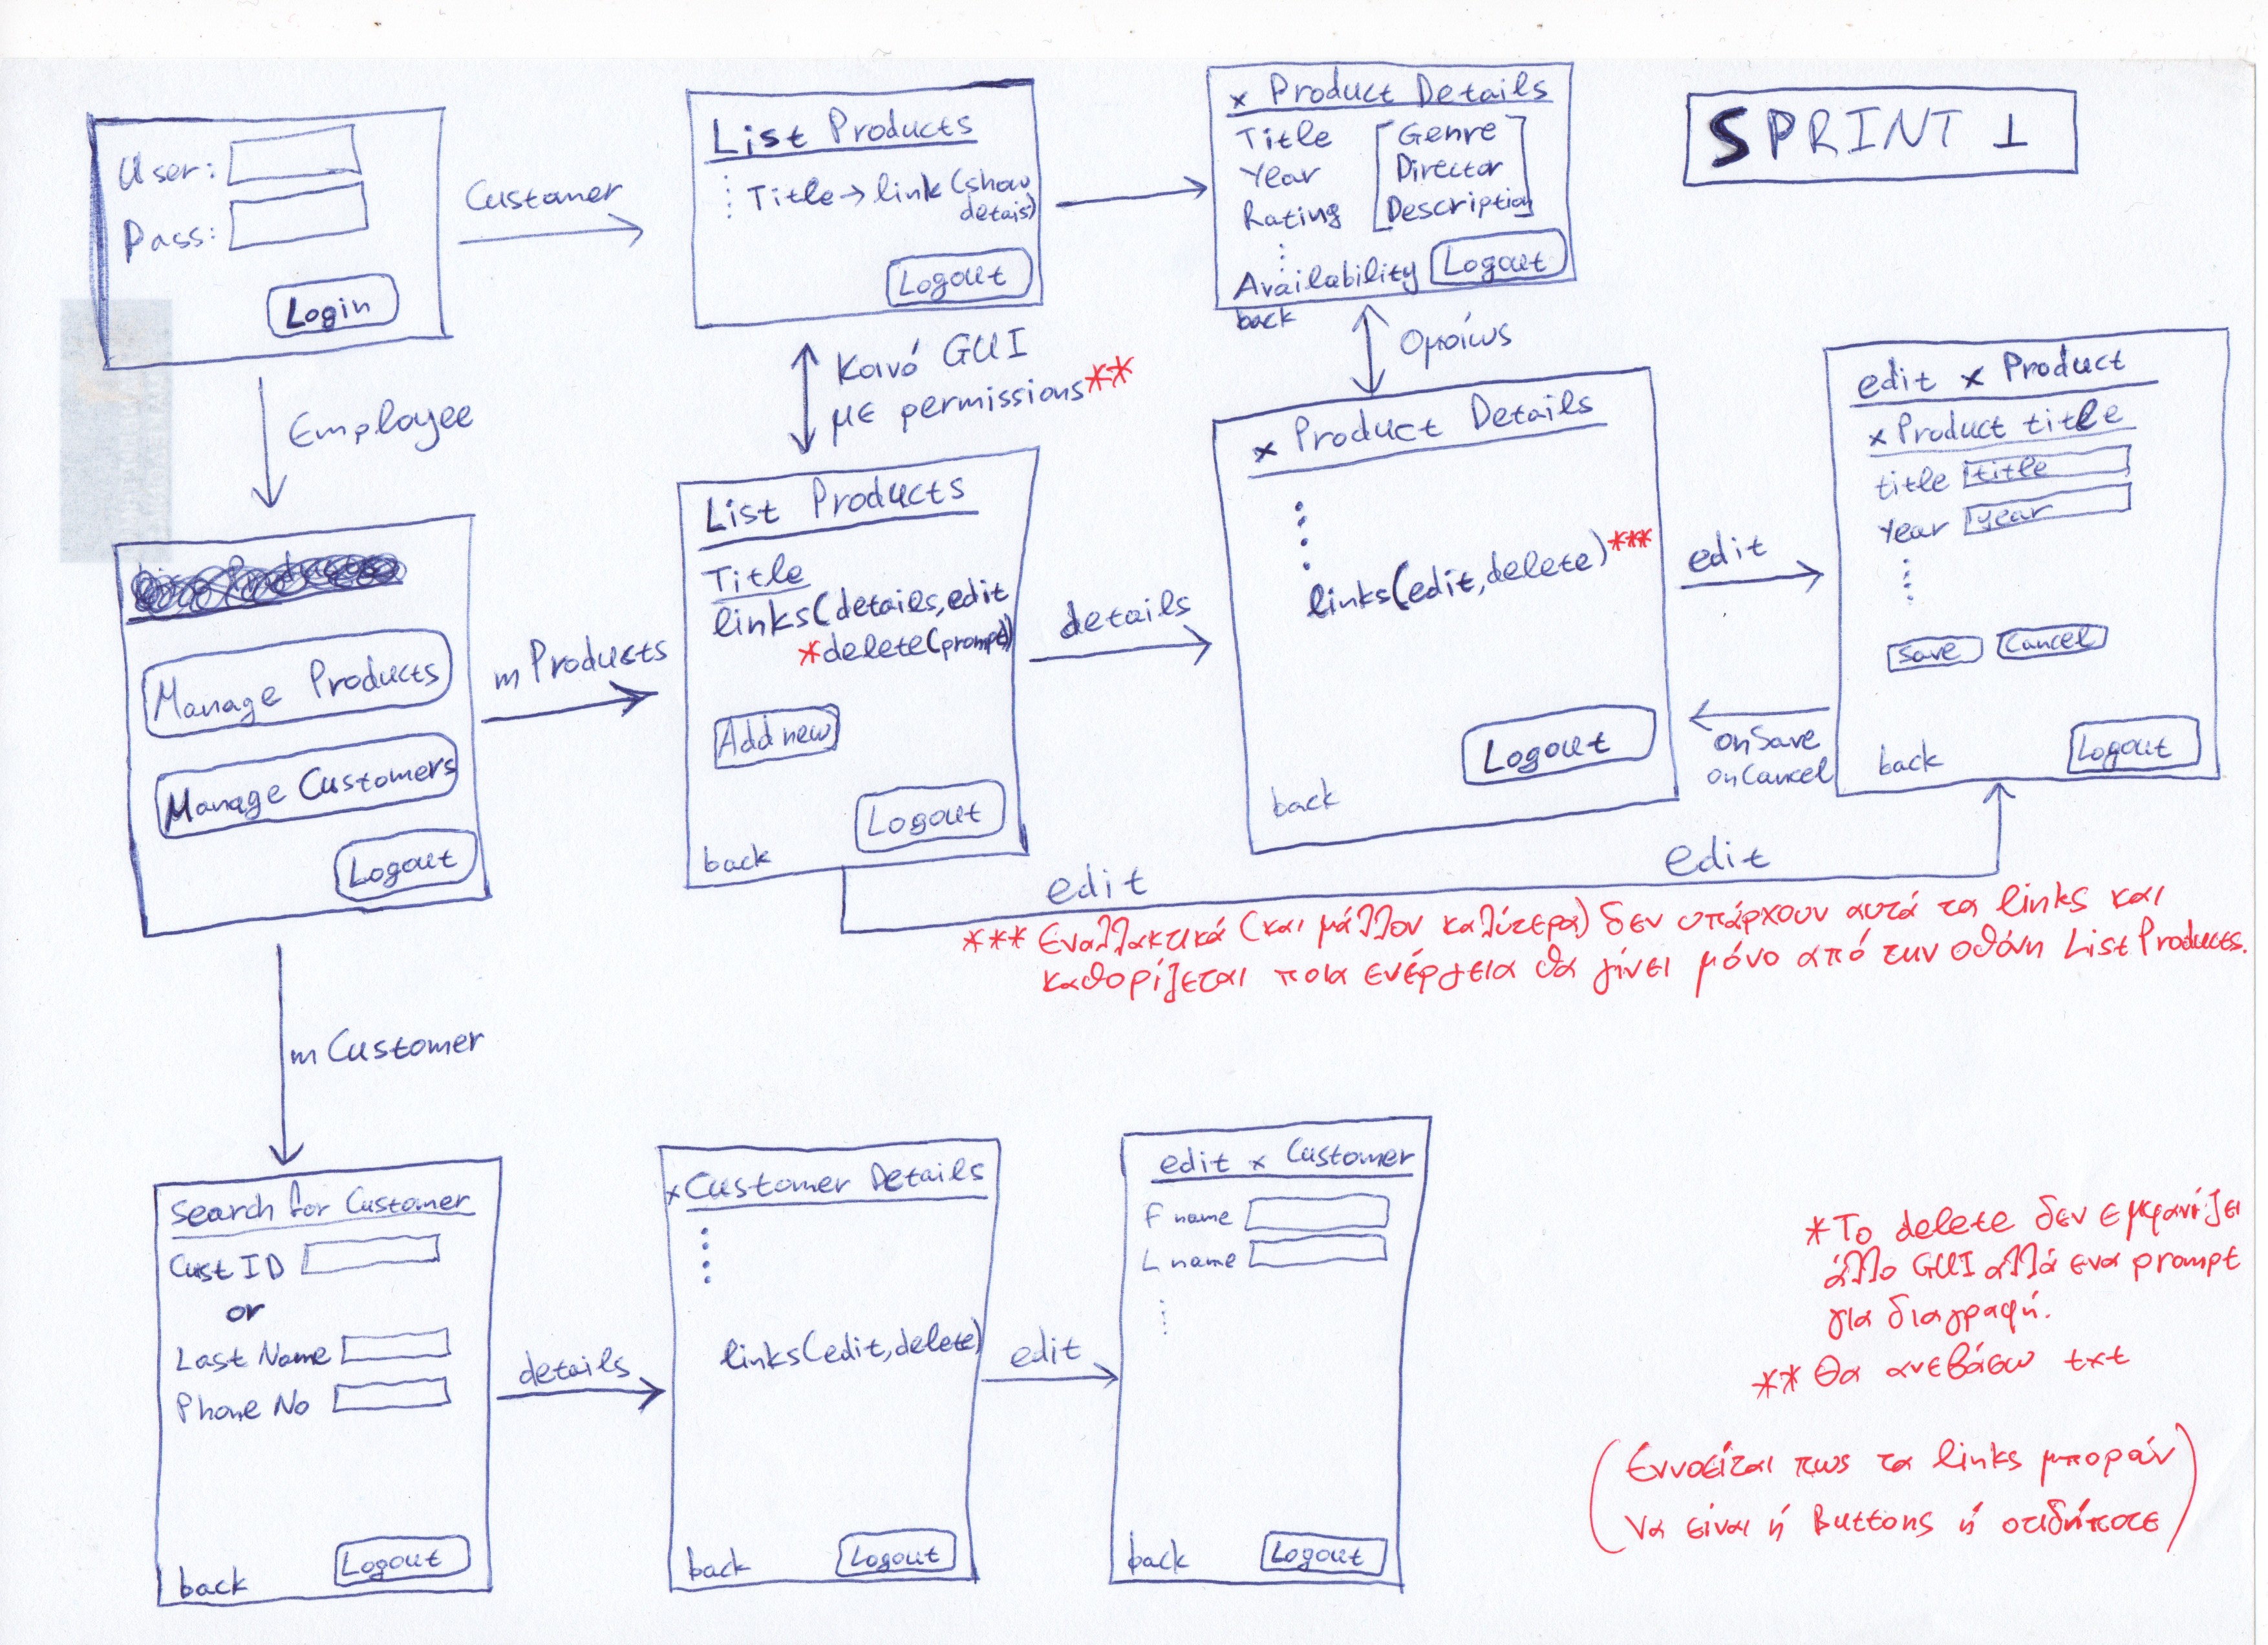 User:
Pass:
Login
Customer
List Products
Title → link (show
detais)
Logout
x Product Details
Title
Year
Rating
Availability
[Genre
Director
Description]
Logout
back
SPRINT 1
Employee
κοινό GUI
με permissions**
Ομοίως
Manage Products
Manage Customers
Logout
m Products
List Products
Title
links(details, edit
*delete(prompt)
Add new
Logout
back
details
x Product Details
links(edit, delete)***
Logout
back
edit
edit x Product
x Product title
title title
Year year
Save Cancel
back
Logout
onSave
onCancel
edit
edit
*** Εναλλακτικά (και μάλλον καλύτερα) δεν υπάρχουν αυτά τα links και
καθορίζεται ποια ενέργεια θα γίνει μόνο από την οθόνη List Products.
m Customer
Search for Customer
Cust ID
or
Last Name
Phone No
Logout
back
details
x Customer Details
links(edit, delete)
back
Logout
edit
edit x Customer
F name
L name
back
Logout
*Το delete δεν εμφανίζει
άλλο GUI αλλά ενα prompt
για διαγραφή.
** Θα ανεβάσω txt
(Εννοείται πως τα links μπορούν
να είναι ή Buttons ή οτιδήποτε)